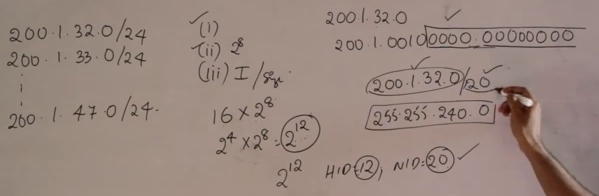 200.1.32.0/24
200.1.33.0/24
200.1.47.0/24.
(i)
(ii) 2
(iii) I /
16 × 2⁸
2⁴ × 2⁸ = 2¹²
2¹²
HID=12, NID=20
200.1.32.0
200.1.00100000.00000000
200.1.32.0/20
255.255.240.0